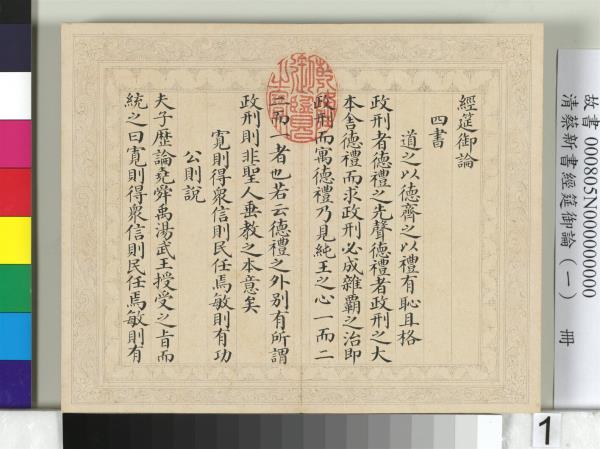 經筵御論
四書
道之以德齊之以禮有恥且格
政刑者德禮之先聲德禮者政刑之大
本舍德禮而求政刑必成雜霸之治即
政刑而寓德禮乃見純王之心一而二
二而一者也若云德禮之外別有所謂
政刑則非聖人垂教之本意矣
寬則得衆信則民任焉敏則有功
公則說
夫子歷論堯舜禹湯武王授受之旨而
統之曰寬則得衆信則民任焉敏則有
乾隆御覽之寶
故書 000805N000000000
清蔡新書經筵御論（一） 冊
1